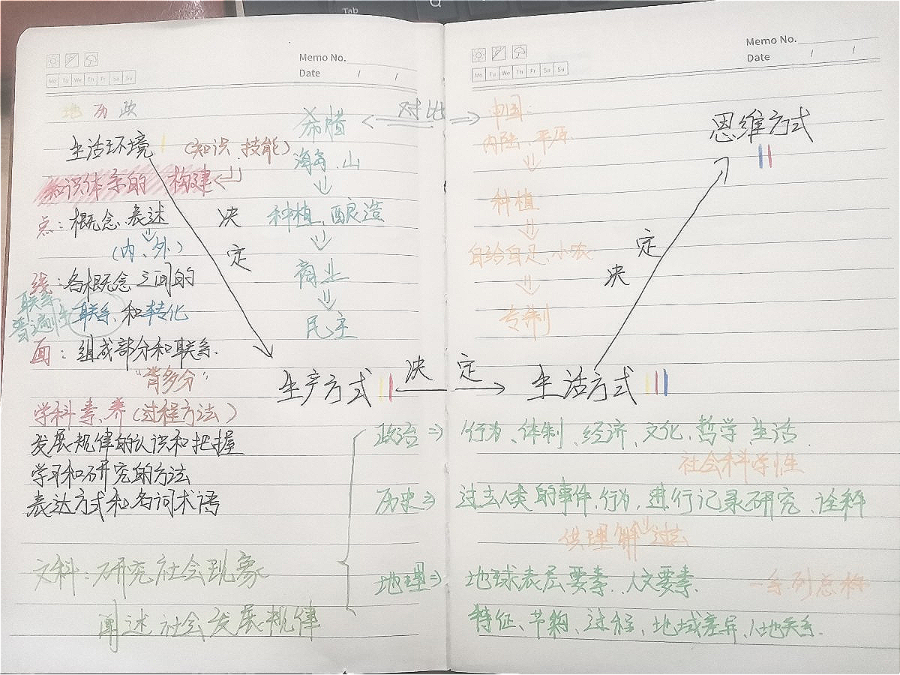 Tab
Memo No.
Date / /
Mo Tu We Th Fr Sa Su
地 历 政
生活环境 (知识、技能)
知识体系的 构建
点:概念、表述
(内、外)
线:各概念之间的
联系 和转化
联系
普遍性
面:组成部分和联系.
"背多分"
学科素养(过程方法)
发展规律的认识和把握
学习和研究的方法
表达方式和名词术语
文科:研究社会现象
阐述社会发展规律
决
定
希腊
海岛、山
种植、酿造
商业
民主
对比
生产方式
决 定
Memo No.
Date / /
Mo Tu We Th Fr Sa Su
中国
内陆、平原
种植
自给自足、小农
专制
思维方式
决 定
生活方式
政治⇒ 行为、体制、经济、文化、哲学 生活
社会科学性
历史⇒ 过去人类的事件、行为,进行记录研究、诠释
供理解过去
地理⇒ 地球表层要素、人文要素
一系列总称
特征、节构、过程、地域差异、人地关系.